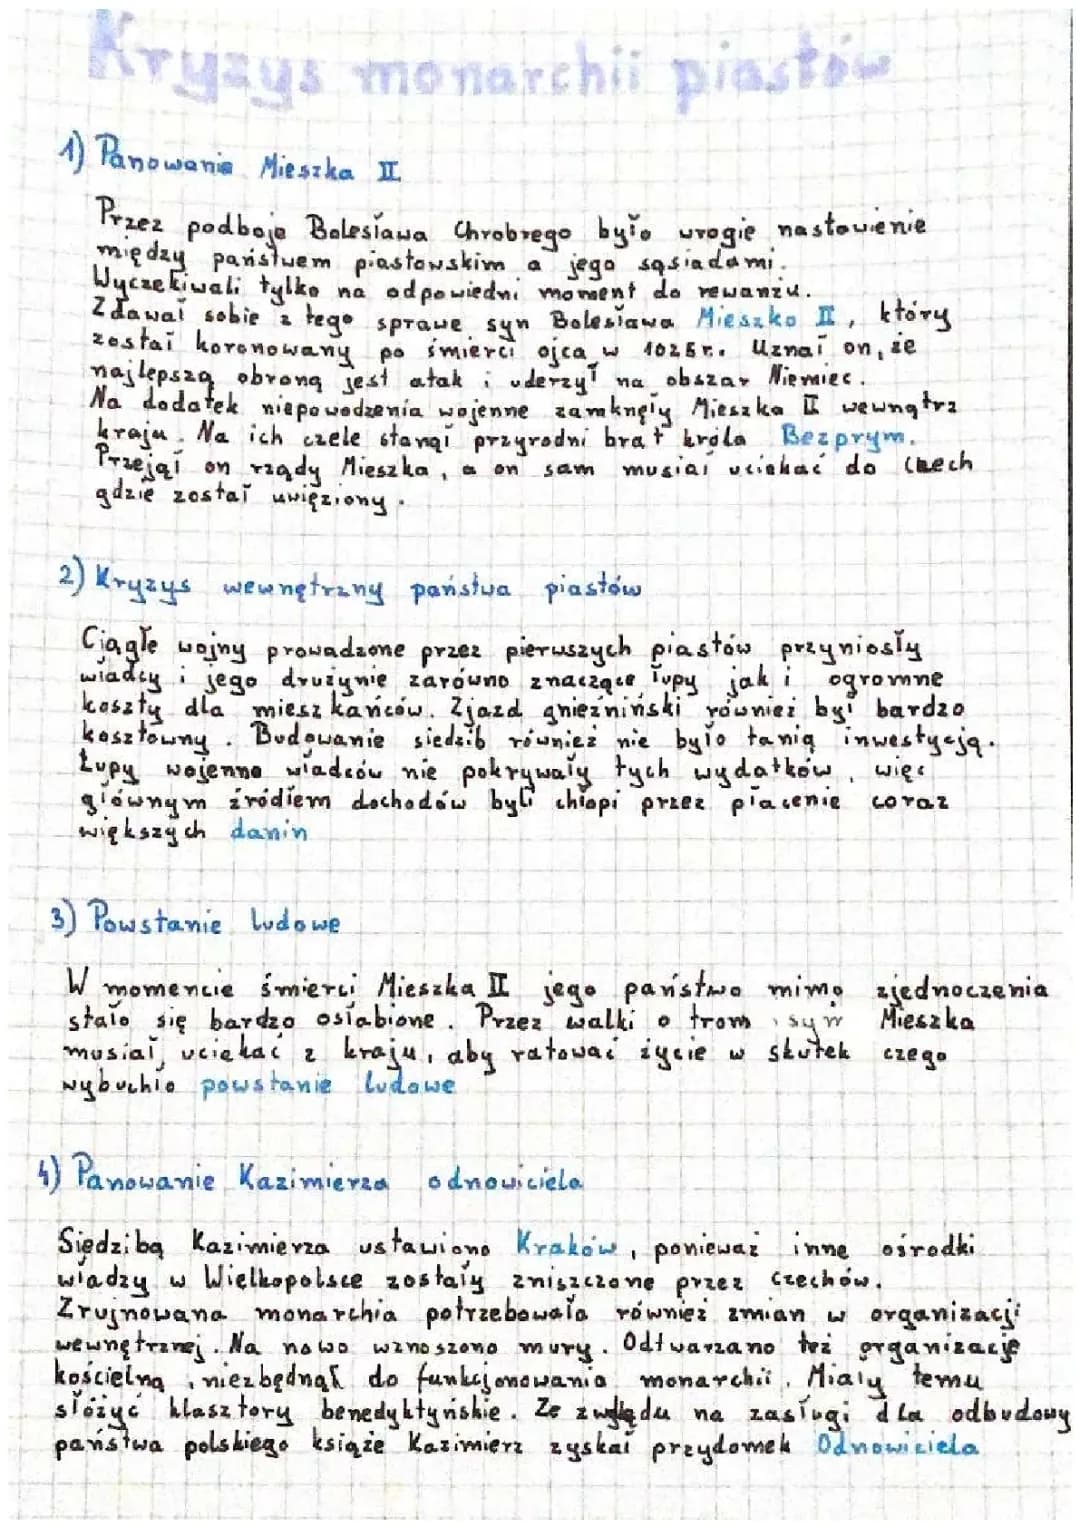 Kryzys monarchii piastów
1) Panowanie Mieszka II
Przez podboje Bolesława Chrobrego było wrogie nastawienie
między państwem piastowskim a jego sąsiadami.
Wyczekiwali tylko na odpowiedni moment do rewanżu.
Zdawał sobie z tego sprawe syn Bolesława Mieszko II, który
został koronowany po śmierci ojca w 1025r. Uznał on, że
najlepszą obroną jest atak i uderzył na obszar Niemiec.
Na dodatek niepowodzenia wojenne zamknęły Mieszka II wewnątrz
kraju. Na ich czele stanął przyrodni brat króla Bezprym.
Przejął on rządy Mieszka, a on sam musiał uciekać do Czech
gdzie został uwięziony.
2) Kryzys wewnętrzny państwa piastów
Ciągłe wojny prowadzone przez pierwszych piastów przyniosły
władcy i jego drużynie zarówno znaczące łupy jak i ogromne
koszty dla mieszkańców. Zjazd gnieźniński również był bardzo
kosztowny. Budowanie siedzib również nie było tanią inwestycją.
Łupy wojenne władców nie pokrywały tych wydatków, więc
głównym źródłem dochodów byli chłopi przez płacenie coraz
większych danin
3) Powstanie ludowe
W momencie śmierci Mieszka II jego państwo mimo zjednoczenia
stało się bardzo osłabione. Przez walki o tron syn Mieszka
musiał uciekać z kraju, aby ratować życie w skutek czego
wybuchło powstanie ludowe
4) Panowanie Kazimierza odnowiciela
Siedzibą Kazimierza ustawiono Kraków, ponieważ inne ośrodki
władzy w Wielkopolsce zostały zniszczone przez Czechów.
Zrujnowana monarchia potrzebowała również zmian w organizacji
wewnętrznej. Na nowo wznoszono mury. Odtwarzano też organizacje
kościelną, niezbędną do funkcjonowania monarchii. Miały temu
słóżyć klasztory benedyktyńskie. Ze względu na zasługi dla odbudowy
państwa polskiego książe Kazimierz zyskał przydomek Odnowiciela